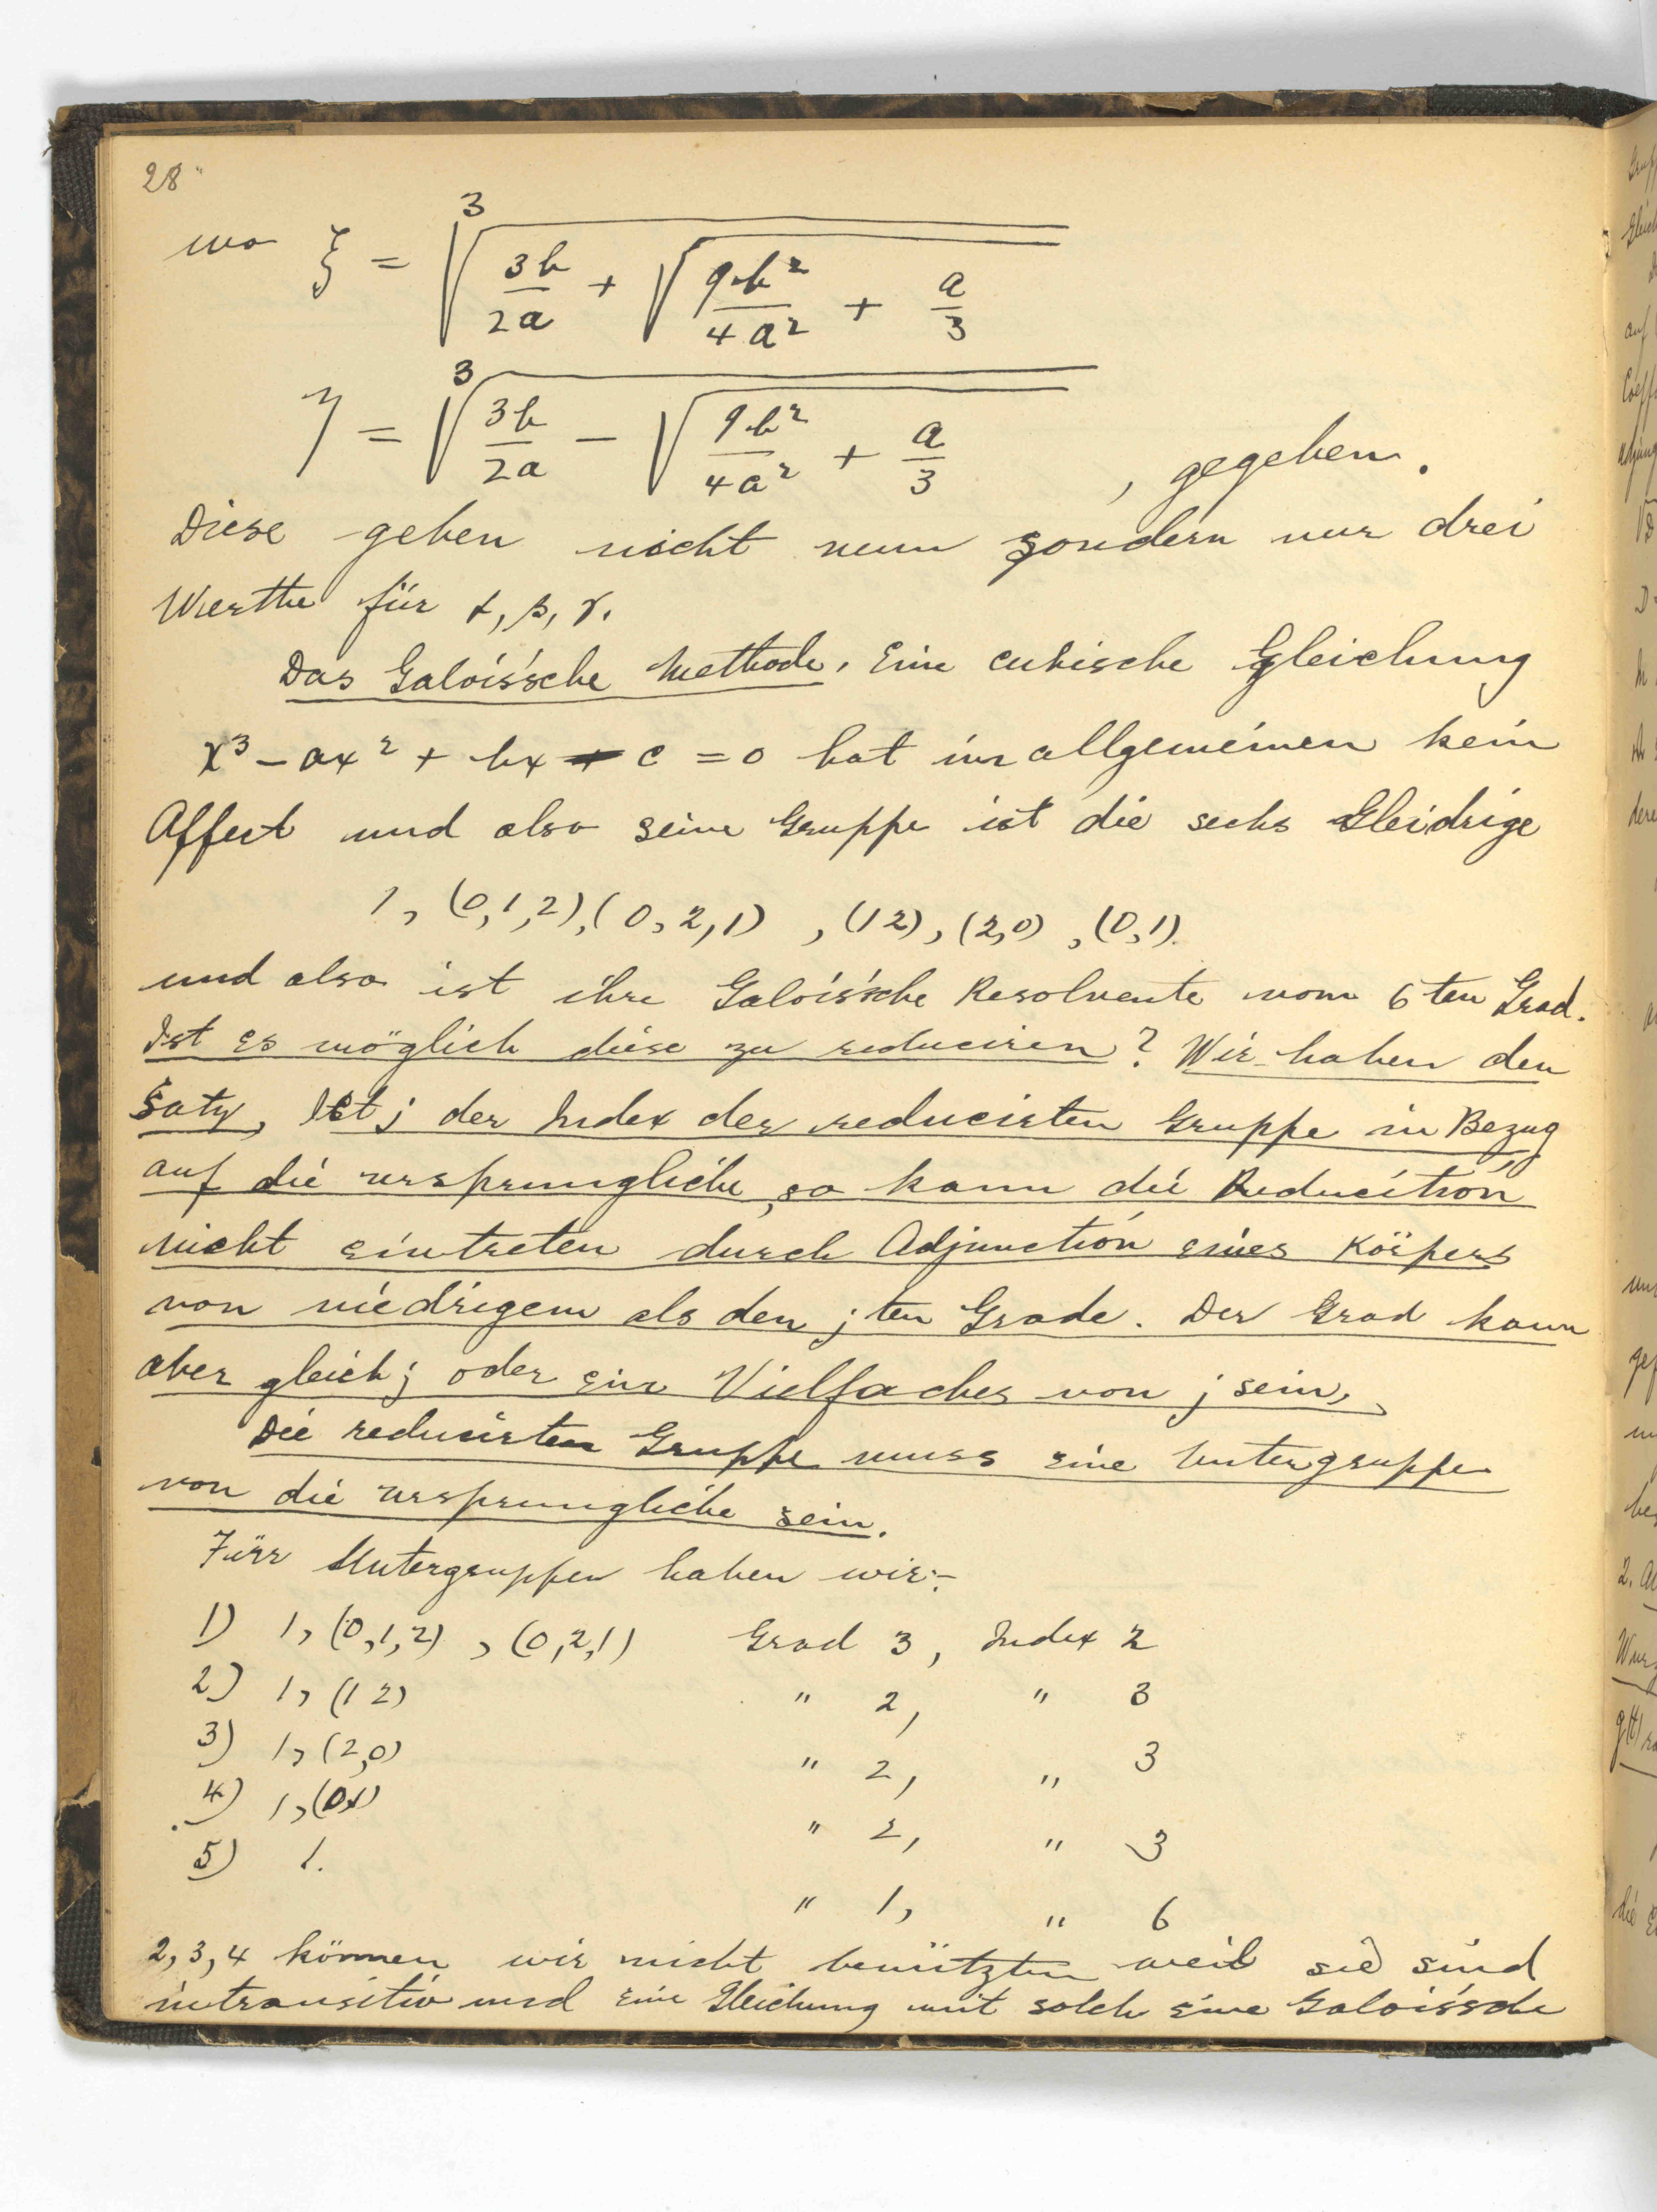 28
wo ξ = ∛(3b/2a + √(9b²/4a² + a/3))
η = ∛(3b/2a − √(9b²/4a² + a/3)) , gegeben.
Diese geben nicht neun sondern nur drei
Werthe für α, β, γ.
Das Galois'sche Methode. Eine cubische Gleichung
x³ − ax² + bx − c = 0 hat im allgemeinen kein
Affect und also seine Gruppe ist die sechs Gleidrige
1, (0,1,2), (0,2,1), (12), (2,0), (0,1).
und also ist ihre Galois'sche Resolvente vom 6ten Grad.
Ist es möglich diese zu reduciren? Wir haben den
Satz, Ist j der Index der reducirten Gruppe in Bezug
auf die ursprungliche, so kann die Reducition
nicht eintreten durch Adjunction eines Körpers
von niedrigem als den j ten Grade. Der Grad kann
aber gleich j oder ein Vielfaches von j sein,
Die reducirten Gruppe muss eine Untergruppe
von die ursprungliche sein.
Fürr Untergruppen haben wir:-
1) 1, (0,1,2), (0,2,1) Grad 3, Index 2
2) 1, (1 2) " 2, " 3
3) 1, (2,0) " 2, " 3
4) 1, (0,1) " 2, " 3
5) 1. " 1, " 6
2, 3, 4 können wir nicht benützten weil sie sind
intransitiv und eine Gleichung mit solch eine Galois'sche